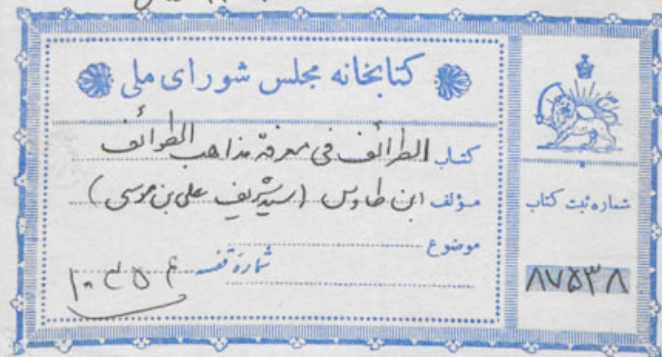 کتابخانه مجلس شورای ملی
کتاب الطرائف فی معرفة مذاهب الطوائف
مؤلف ابن طاوس (سید شریف علی بن موسی)
موضوع
شماره قفسه
شماره ثبت کتاب
۸۷۵۳۸